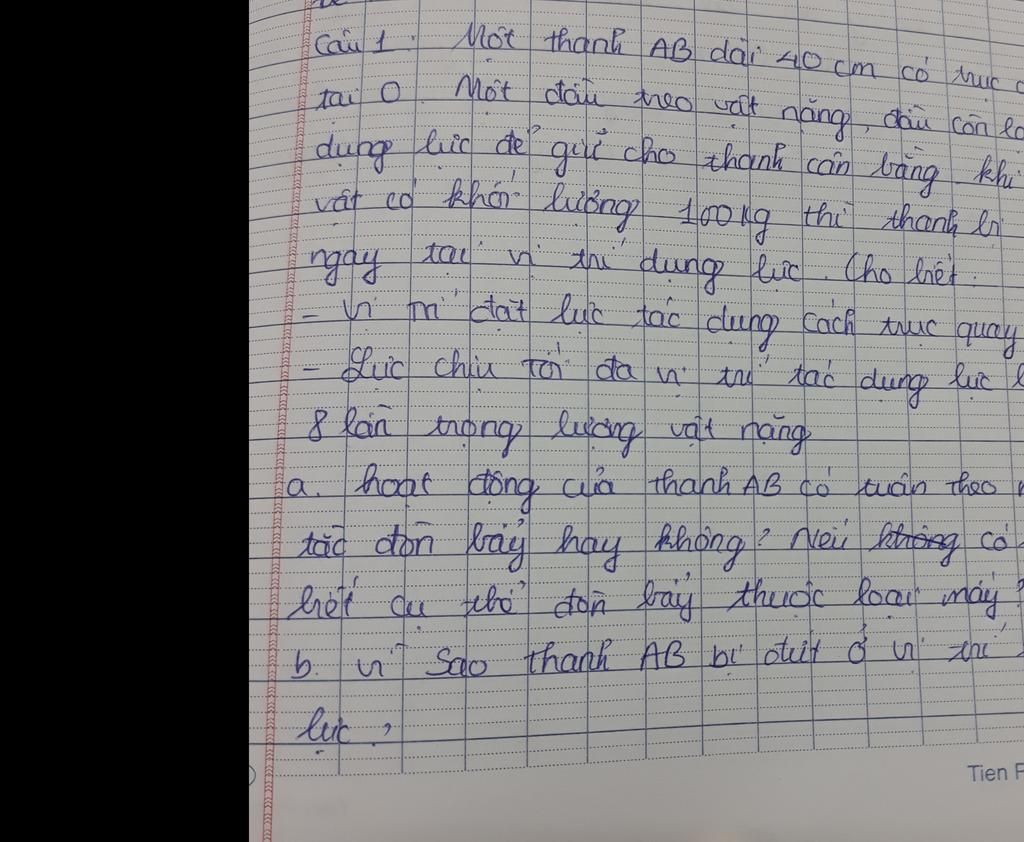 Câu 1: Một thanh AB dài 40 cm có trục
tại O. Một đầu treo vật nặng, đầu còn
dụng lực để giữ cho thanh cân bằng khi
vật có khối lượng 100kg thì thanh bị
ngay tại vị trí dụng lực. Cho biết:
- Vị trí đặt lực tác dụng cách trục quay
- Lực chịu tối đa vị trí tác dụng lực
8 lần trọng lượng vật nặng
a. hoạt động của thanh AB có tuân theo
tắc đòn bẩy hay không? Nếu không có
biết cụ thể đòn bẩy thuộc loại máy
b. Vì sao thanh AB bị đứt ở vị trí
lực?
Tien